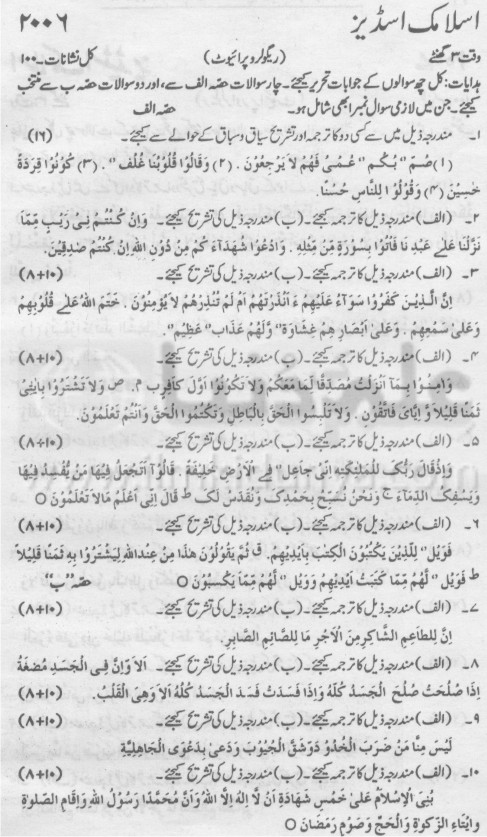 اسلامک اسٹڈیز ۲۰۰۶
وقت ۳ گھنٹے (ریگولر و پرائیوٹ) کل نشانات۔ ۱۰۰
ہدایات: کل چھ سوالوں کے جوابات تحریر کیجئے۔ چار سوالات حصّہ الف سے، اور دو سوالات حصّہ ب سے منتخب
کیجئے۔ جن میں لازمی سوال نمبر ۱ بھی شامل ہو۔ حصّہ الف
۱۔ مندرجہ ذیل میں سے کسی دو کا ترجمہ اور تشریح سیاق و سباق کے حوالے سے کیجئے۔ (۱۶)
(۱) صُمّ" بُكْم" عُمْىٌ فَهُمْ لَا يَرْجِعُوْنَ۔ (۲) وَقَالُوْا قُلُوْبُنَا غُلْف"۔ (۳) كُوْنُوْا قِرَدَةً
خٰسِئِيْنَ (۴) وَقُوْلُوْا لِلنَّاسِ حُسْنًا۔
۲۔ (الف) مندرجہ ذیل کا ترجمہ کیجئے۔ (ب) مندرجہ ذیل کی تشریح کیجئے۔ وَاِنْ كُنْتُمْ فِىْ رَيْبٍ مِّمَّا
نَزَّلْنَا عَلٰى عَبْدِنَا فَاْتُوْا بِسُوْرَةٍ مِّنْ مِّثْلِهٖ۔ وَادْعُوْا شُهَدَآءَ كُمْ مِّنْ دُوْنِ اللّٰهِ اِنْ كُنْتُمْ صٰدِقِيْنَ۔
۳۔ (الف) مندرجہ ذیل کا ترجمہ کیجئے۔ (ب) مندرجہ ذیل کی تشریح کیجئے۔ (۸+۱۰)
اِنَّ الَّذِيْنَ كَفَرُوْا سَوَآءٌ عَلَيْهِمْ ءَ اَنْذَرْتَهُمْ اَمْ لَمْ تُنْذِرْهُمْ لَا يُؤْمِنُوْنَ۔ خَتَمَ اللّٰهُ عَلٰے قُلُوْبِهِمْ
وَعَلٰى سَمْعِهِمْ۔ وَعَلٰى اَبْصَارِهِمْ غِشَاوَة" وَّلَهُمْ عَذَاب" عَظِيْم"۔
۴۔ (الف) مندرجہ ذیل کا ترجمہ کیجئے۔ (ب) مندرجہ ذیل کی تشریح کیجئے۔ (۸+۱۰)
وَاٰمِنُوْا بِمَآ اَنْزَلْتُ مُصَدِّقًا لِّمَا مَعَكُمْ وَلَا تَكُوْنُوْا اَوَّلَ كَافِرٍ بِهٖ۔ وَلَا تَشْتَرُوْا بِاٰيٰتِىْ
ثَمَنًا قَلِيْلًا وَّ اِيَّاىَ فَاتَّقُوْنِ۔ وَلَا تَلْبِسُوا الْحَقَّ بِالْبَاطِلِ وَتَكْتُمُوا الْحَقَّ وَاَنْتُمْ تَعْلَمُوْنَ۔
۵۔ (الف) مندرجہ ذیل کا ترجمہ کیجئے۔ (ب) مندرجہ ذیل کی تشریح کیجئے۔ (۸+۱۰)
وَاِذْ قَالَ رَبُّكَ لِلْمَلٰٓئِكَةِ اِنِّىْ جَاعِل" فِے الْاَرْضِ خَلِيْفَةً۔ قَالُوْآ اَتَجْعَلُ فِيْهَا مَنْ يُّفْسِدُ فِيْهَا
وَيَسْفِكُ الدِّمَآءَ ج وَنَحْنُ نُسَبِّحُ بِحَمْدِكَ وَنُقَدِّسُ لَكَ ط قَالَ اِنِّى اَعْلَمُ مَالَا تَعْلَمُوْنَ ○
۶۔ (الف) مندرجہ ذیل کا ترجمہ کیجئے۔ (ب) مندرجہ ذیل کی تشریح کیجئے۔ (۸+۱۰)
فَوَيْل" لِّلَّذِيْنَ يَكْتُبُوْنَ الْكِتٰبَ بِاَيْدِيْهِمْ۔ ق ثُمَّ يَقُوْلُوْنَ هٰذَا مِنْ عِنْدِ اللّٰهِ لِيَشْتَرُوْا بِهٖ ثَمَنًا قَلِيْلًا
ط فَوَيْل" لَّهُمْ مِّمَّا كَتَبَتْ اَيْدِيْهِمْ وَوَيْل" لَّهُمْ مِّمَّا يَكْسِبُوْنَ ○ حصّہ "ب"
۷۔ (الف) مندرجہ ذیل کا ترجمہ کیجئے۔ (ب) مندرجہ ذیل کی تشریح کیجئے۔ (۸+۱۰)
اِنَّ لِلطَّاعِمِ الشَّاكِرِ مِنَ الْاَجْرِ مَا لِلصَّائِمِ الصَّابِرِ۔
۸۔ (الف) مندرجہ ذیل کا ترجمہ کیجئے۔ (ب) مندرجہ ذیل کی تشریح کیجئے۔ اَلَا وَاِنَّ فِى الْجَسَدِ مُضْغَةً
اِذَا صَلُحَتْ صَلُحَ الْجَسَدُ كُلُّهُ وَاِذَا فَسَدَتْ فَسَدَ الْجَسَدُ كُلُّهُ اَلَا وَهِىَ الْقَلْبُ۔ (۸+۱۰)
۹۔ (الف) مندرجہ ذیل کا ترجمہ کیجئے۔ (ب) مندرجہ ذیل کی تشریح کیجئے۔ (۸+۱۰)
لَيْسَ مِنَّا مَنْ ضَرَبَ الْخُدُوْدَ وَشَقَّ الْجُيُوْبَ وَدَعٰى بِدَعْوَى الْجَاهِلِيَّةِ
۱۰۔ (الف) مندرجہ ذیل کا ترجمہ کیجئے۔ (ب) مندرجہ ذیل کی تشریح کیجئے۔ (۸+۱۰)
بُنِىَ الْاِسْلَامُ عَلٰى خَمْسٍ شَهَادَةِ اَنْ لَّا اِلٰهَ اِلَّا اللّٰهُ وَاَنَّ مُحَمَّدًا رَّسُوْلُ اللّٰهِ وَاِقَامِ الصَّلٰوةِ
وَاِيْتَاءِ الزَّكٰوةِ وَالْحَجِّ وَصَوْمِ رَمَضَانَ ○